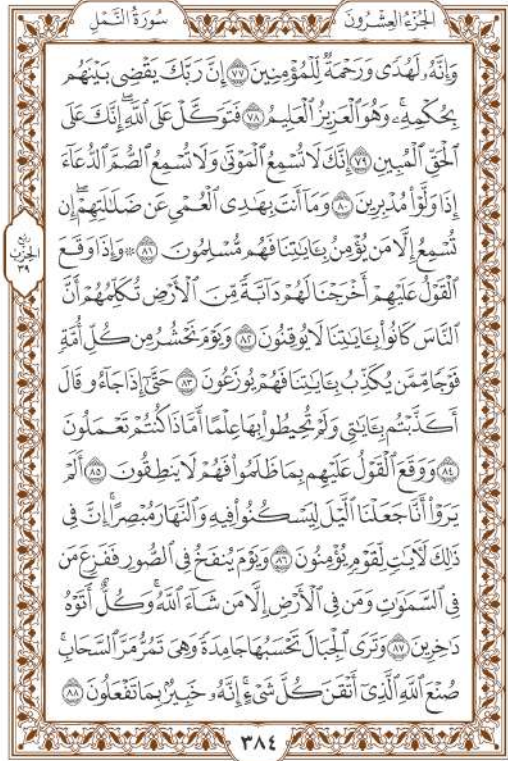 الجُزْءُ العِشْرُونَ
سُورَةُ النَّمْلِ
وَإِنَّهُۥ لَهُدٗى وَرَحۡمَةٞ لِّلۡمُؤۡمِنِينَ ٧٧ إِنَّ رَبَّكَ يَقۡضِي بَيۡنَهُم
بِحُكۡمِهِۦۚ وَهُوَ ٱلۡعَزِيزُ ٱلۡعَلِيمُ ٧٨ فَتَوَكَّلۡ عَلَى ٱللَّهِۖ إِنَّكَ عَلَى
ٱلۡحَقِّ ٱلۡمُبِينِ ٧٩ إِنَّكَ لَا تُسۡمِعُ ٱلۡمَوۡتَىٰ وَلَا تُسۡمِعُ ٱلصُّمَّ ٱلدُّعَآءَ
إِذَا وَلَّوۡاْ مُدۡبِرِينَ ٨٠ وَمَآ أَنتَ بِهَٰدِي ٱلۡعُمۡيِ عَن ضَلَٰلَتِهِمۡۖ إِن
تُسۡمِعُ إِلَّا مَن يُؤۡمِنُ بِـَٔايَٰتِنَا فَهُم مُّسۡلِمُونَ ٨١ ۞ وَإِذَا وَقَعَ
ٱلۡقَوۡلُ عَلَيۡهِمۡ أَخۡرَجۡنَا لَهُمۡ دَآبَّةٗ مِّنَ ٱلۡأَرۡضِ تُكَلِّمُهُمۡ أَنَّ
ٱلنَّاسَ كَانُواْ بِـَٔايَٰتِنَا لَا يُوقِنُونَ ٨٢ وَيَوۡمَ نَحۡشُرُ مِن كُلِّ أُمَّةٖ
فَوۡجٗا مِّمَّن يُكَذِّبُ بِـَٔايَٰتِنَا فَهُمۡ يُوزَعُونَ ٨٣ حَتَّىٰٓ إِذَا جَآءُو قَالَ
أَكَذَّبۡتُم بِـَٔايَٰتِي وَلَمۡ تُحِيطُواْ بِهَا عِلۡمًا أَمَّاذَا كُنتُمۡ تَعۡمَلُونَ
٨٤ وَوَقَعَ ٱلۡقَوۡلُ عَلَيۡهِم بِمَا ظَلَمُواْ فَهُمۡ لَا يَنطِقُونَ ٨٥ أَلَمۡ
يَرَوۡاْ أَنَّا جَعَلۡنَا ٱلَّيۡلَ لِيَسۡكُنُواْ فِيهِ وَٱلنَّهَارَ مُبۡصِرًاۚ إِنَّ فِي
ذَٰلِكَ لَأٓيَٰتٖ لِّقَوۡمٖ يُؤۡمِنُونَ ٨٦ وَيَوۡمَ يُنفَخُ فِي ٱلصُّورِ فَفَزِعَ مَن
فِي ٱلسَّمَٰوَٰتِ وَمَن فِي ٱلۡأَرۡضِ إِلَّا مَن شَآءَ ٱللَّهُۚ وَكُلٌّ أَتَوۡهُ
دَٰخِرِينَ ٨٧ وَتَرَى ٱلۡجِبَالَ تَحۡسَبُهَا جَامِدَةٗ وَهِيَ تَمُرُّ مَرَّ ٱلسَّحَابِۚ
صُنۡعَ ٱللَّهِ ٱلَّذِيٓ أَتۡقَنَ كُلَّ شَيۡءٍۚ إِنَّهُۥ خَبِيرُۢ بِمَا تَفۡعَلُونَ ٨٨
رُبْع
الحِزْب
٣٩
٣٨٤